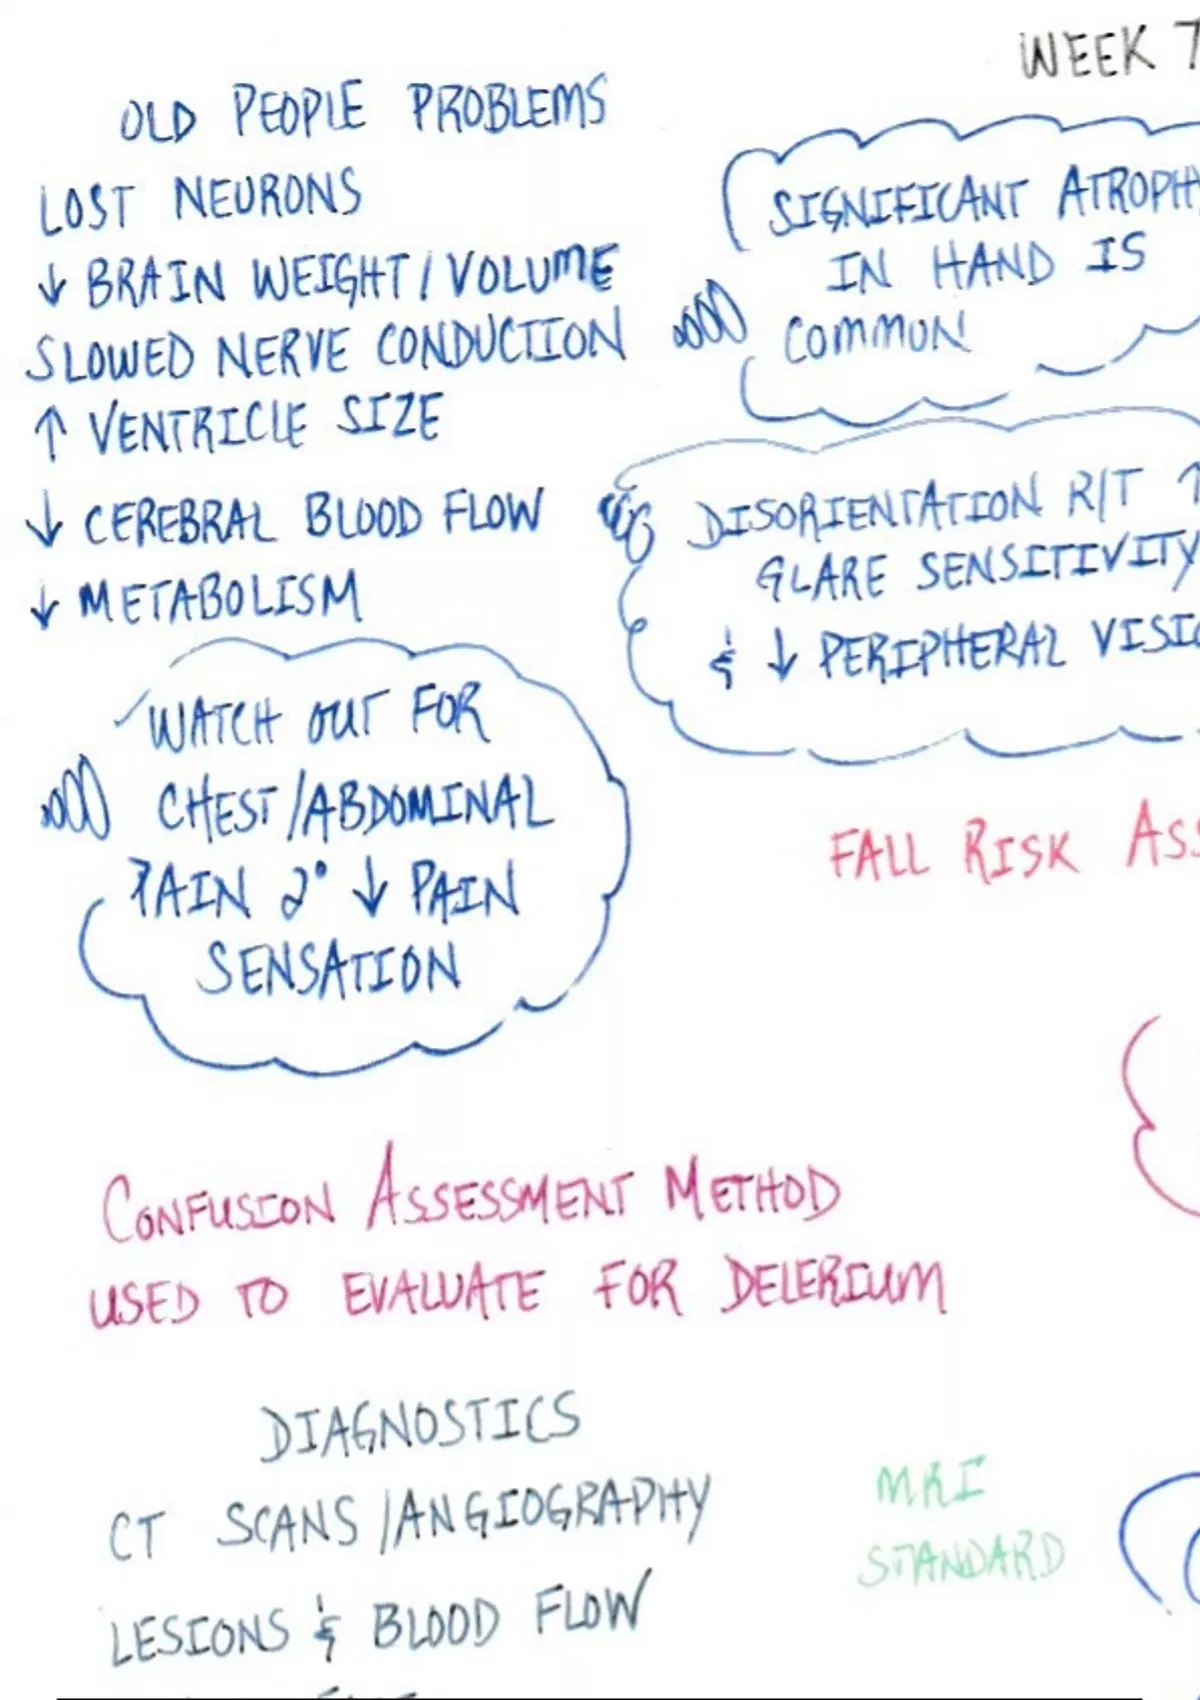 WEEK 7
OLD PEOPLE PROBLEMS
LOST NEURONS
↓ BRAIN WEIGHT/VOLUME
SLOWED NERVE CONDUCTION
↑ VENTRICLE SIZE
↓ CEREBRAL BLOOD FLOW
↓ METABOLISM
SIGNIFICANT ATROPHY
IN HAND IS
COMMON
DISORIENTATION R/T ↑
GLARE SENSITIVITY
& ↓ PERIPHERAL VISIO
WATCH OUT FOR
CHEST/ABDOMINAL
PAIN 2° ↓ PAIN
SENSATION
FALL RISK ASS
CONFUSION ASSESSMENT METHOD
USED TO EVALUATE FOR DELERIUM
DIAGNOSTICS
CT SCANS/ANGIOGRAPHY
LESIONS & BLOOD FLOW
MRI
STANDARD